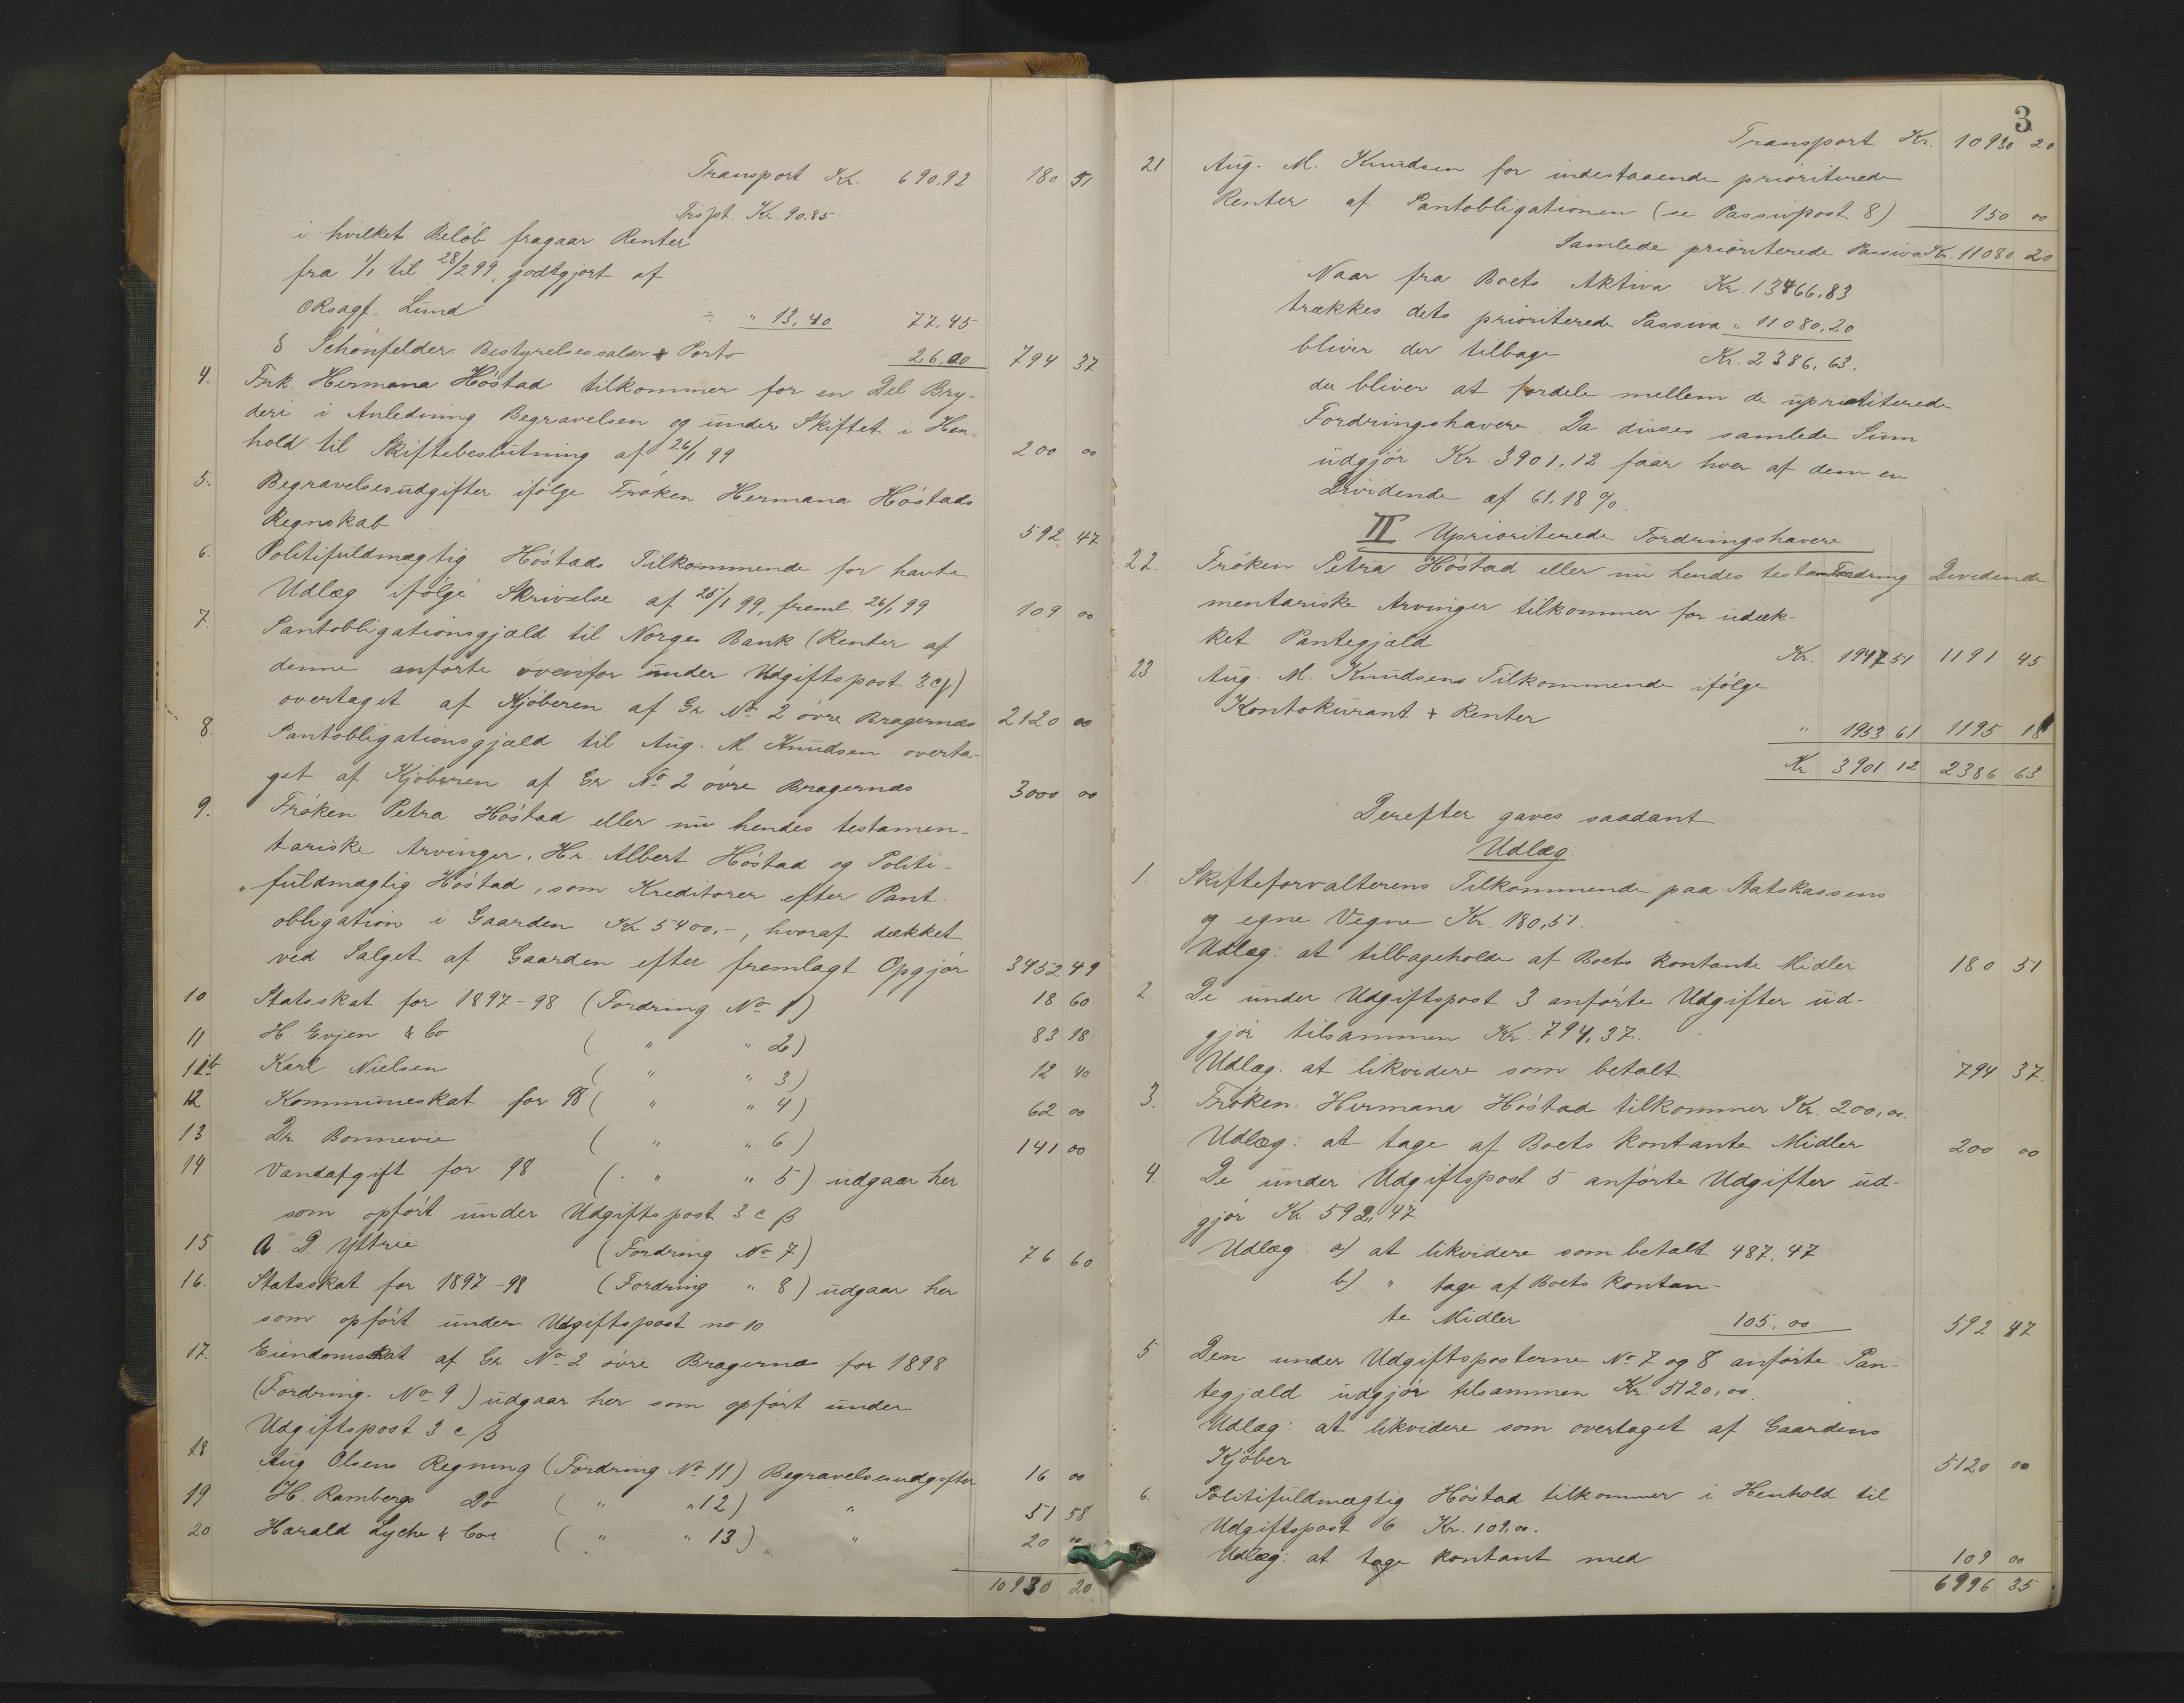 Transport Kr. 690,92 180 51
Trspt. Kr. 90.85
i hvilket Beløb fragaar Renter
fra 1/1 til 28/2 99, godtgjort af
ORsagf. Lund ÷ " 13,40 77,45
δ Schönfelder Bestyrelsessalær + Porto 26,00 794 37
4. Frk. Hermana Høstad tilkommer for en Del Bry-
deri i Anledning Begravelsen og under Skiftet i Hen-
hold til Skiftebeslutning af 26/1 99 200 00
5. Begravelsesudgifter ifølge Frøken Hermana Høstads
Regnskab 592 47
6. Politifuldmægtig Høstads Tilkommende for havte
Udlæg ifølge Skrivelse af 25/1 99, freml. 26/1 99 109 00
7. Pantobligationsgjæld til Norges Bank (Renter af
denne anførte ovenfor under Udgiftspost 3cγ)
overtaget af Kjøberen af Gr No 2 øvre Bragernæs 2120 00
8. Pantobligationsgjæld til Aug. M. Knudsen overta-
get af Kjøberen af Gr No 2 øvre Bragernæs 3000 00
9. Frøken Petra Høstad eller nu hendes testamen-
tariske Arvinger, Hr. Albert Høstad og Politi-
fuldmægtig Høstad, som Kreditorer efter Pant-
obligation i Gaarden Kr 5400,-, hvoraf dækket
ved Salget af Gaarden efter fremlagt Opgjør 3452 49
10 Statsskat for 1897-98 (Fordring No 1) 18 60
11 H. Evjen & Co ( " " 2) 83 18
11b Karl Nielsen ( " " 3) 12 40
12 Kommuneskat for 98 ( " " 4) 62 00
13 Dr. Bonnevie ( " " 6) 141 00
14 Vandafgift for 98 ( " " 5) udgaar her
som opført under Udgiftspost 3 c β
15 A. D Yttrie (Fordring No 7) 76 60
16. Statsskat for 1897-98 (Fordring " 8) udgaar her
som opført under Udgiftspost no 10.
17. Eiendomsskat af Gr No 2 øvre Bragernæs for 1898
(Fordring. No 9) udgaar her som opført under
Udgiftspost 3 c β
18 Aug Olsens Regning (Fordring No 11) Begravelsesudgifter 16 00
19 H. Rambergs Do ( " " 12) " 51 58
20 Harald Lyche & Cos ( " " 13) " 20 00
10930 20
3
Transport Kr. 10930 20
21 Aug. M. Knudsen for indestaaende prioriterede
Renter af Pantobligationen (se Passivpost 8) 150 00
Samlede prioriterede Passiva Kr. 11080 20
Naar fra Boets Aktiva Kr. 13466,83
trækkes dets prioriterede Passiva " 11080,20
bliver der tilbage Kr. 2386,63,
der bliver at fordele mellem de uprioriterede
Fordringshavere. Da disses samlede Sum
udgjør Kr. 3901,12 faar hver af dem en
Dividende af 61,18 %.
II Uprioriterede Fordringshavere
22. Frøken Petra Høstad eller nu hendes testa- Fordring Dividende
mentariske Arvinger tilkommer for udæk-
ket Pantegjæld Kr. 1947 51 1191 45
23 Aug. M. Knudsens Tilkommende ifølge
Kontokurant + Renter " 1953 61 1195 18
Kr. 3901 12 2386 63
Derefter gaves saadant
Udlæg:
1. Skifteforvalterens Tilkommende paa Statskassens
og egne Vegne Kr. 180,51.
Udlæg: at tilbageholde af Boets kontante Midler 180 51
2. De under Udgiftspost 3 anførte Udgifter ud-
gjør tilsammen Kr. 794,37.
Udlæg: at likvidere som betalt 794 37.
3. Frøken Hermana Høstad tilkommer Kr. 200,00.
Udlæg: at tage af Boets kontante Midler 200 00
4. De under Udgiftspost 5 anførte Udgifter ud-
gjør Kr. 592,47.
Udlæg: a) at likvidere som betalt 487,47
b) " tage af Boets kontan-
te Midler 105,00 592 47
5 Den under Udgiftsposterne No 7 og 8 anførte Pan-
tegjæld udgjør tilsammen Kr. 5120,00.
Udlæg: at likvidere som overtaget af Gaardens
Kjøber 5120 00
6. Politifuldmægtig Høstad tilkommer i Henhold til
Udgiftspost 6 Kr. 109,00.
Udlæg: at tage kontant med 109 00
6996 35